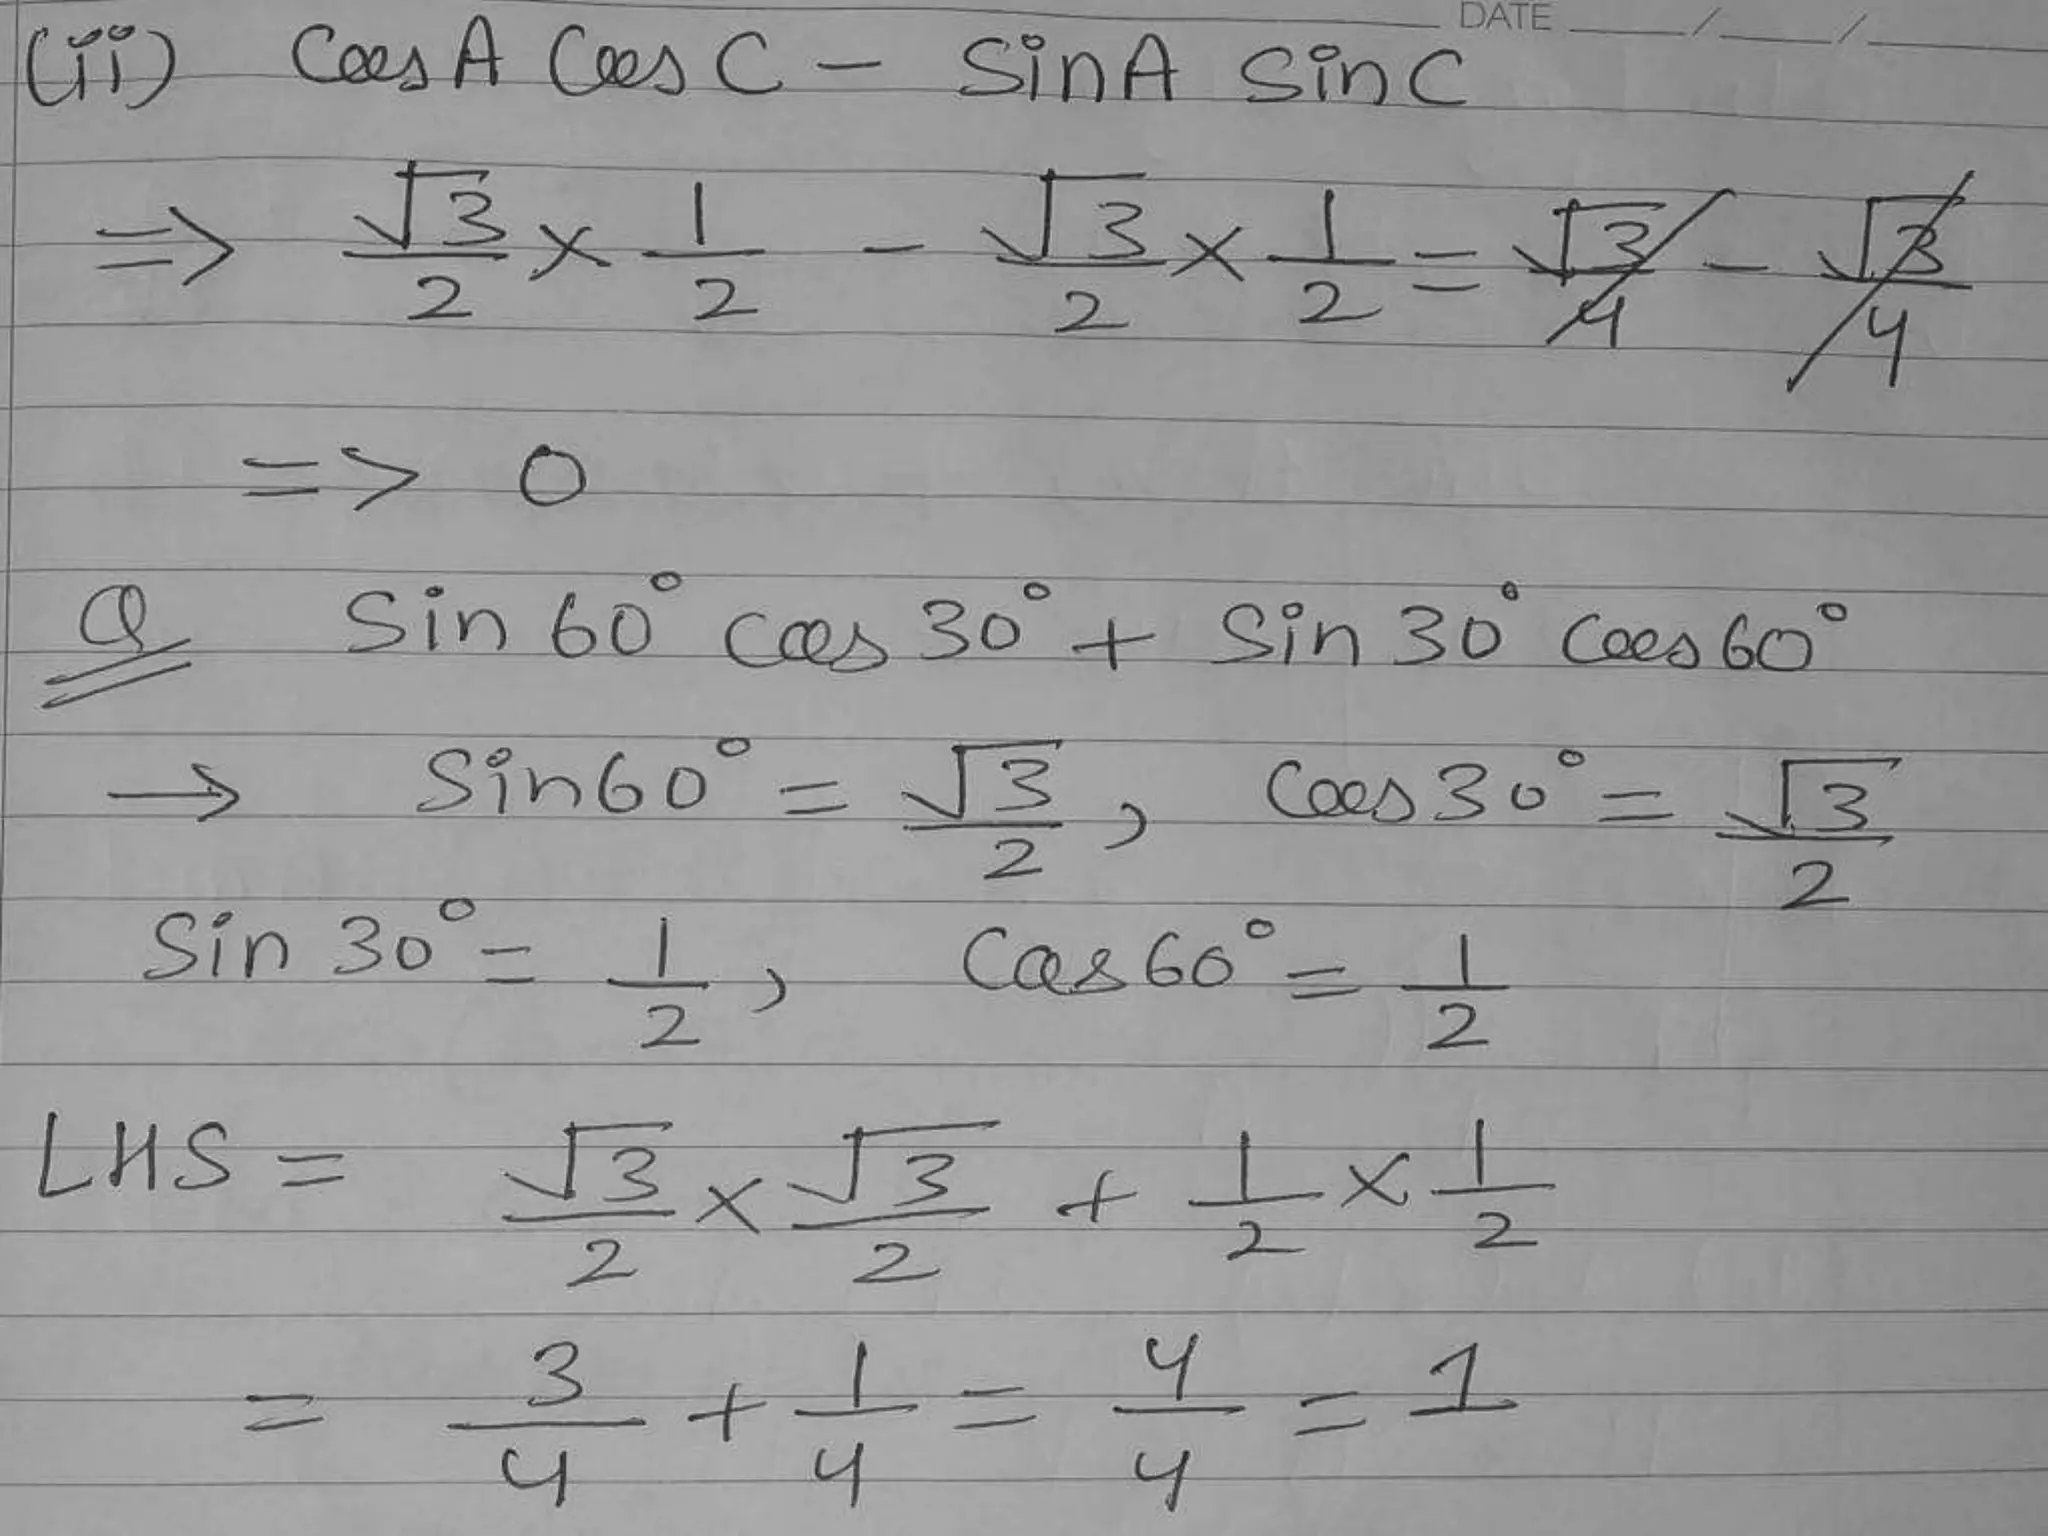 DATE __/__/__
(ii) Cos A Cos C - Sin A Sin C
=> √3/2 × 1/2 - √3/2 × 1/2 = √3/4 - √3/4
=> 0
Q Sin 60° cos 30° + Sin 30° Cos 60°
→ Sin 60° = √3/2, Cos 30° = √3/2
Sin 30° = 1/2, Cos 60° = 1/2
LHS = √3/2 × √3/2 + 1/2 × 1/2
= 3/4 + 1/4 = 4/4 = 1